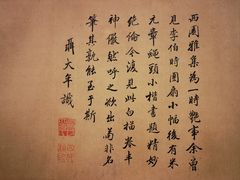 西園雅集為一時艷事余曾
見李伯時團扇小幅後有米
元章繩頭小楷書題精妙
絕倫今復見此白描卷丰
神儼然呼之欲出焉非名
筆其孰能至于斯
聶大年識